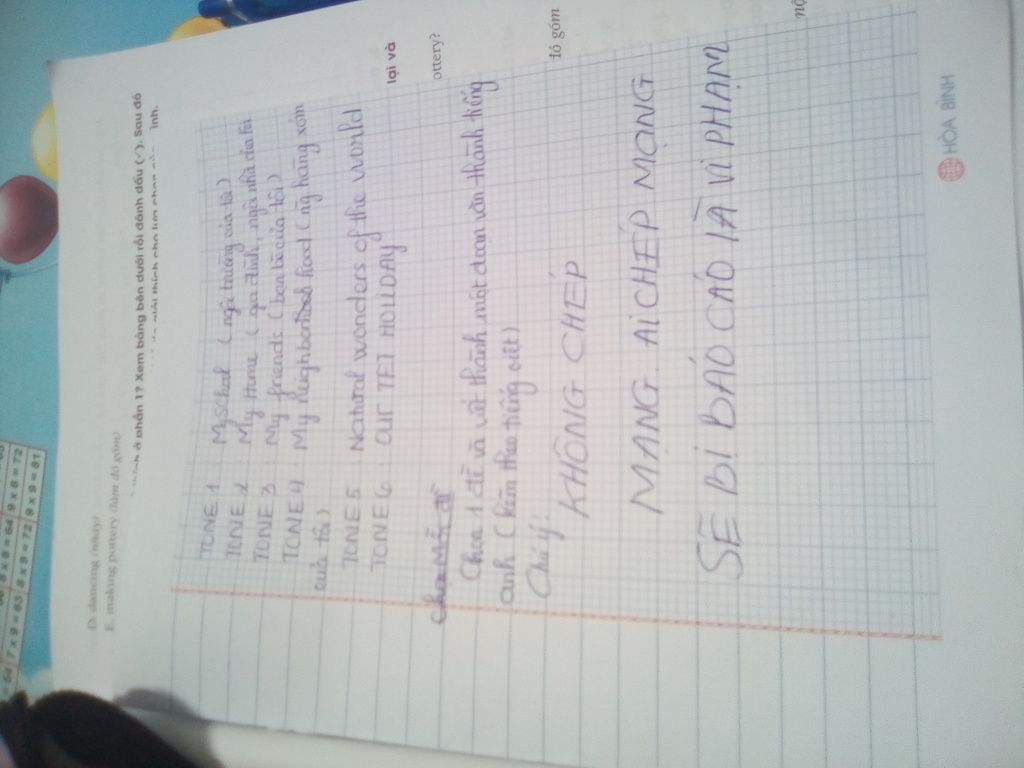 D. dancing (nhảy)
E. making pottery (làm đồ gốm)
ở phần 1? Xem bảng bên dưới rồi đánh dấu (✓). Sau đó
lại và
ottery?
đó gồm
TONE 1 : My school (ngôi trường của tôi)
TONE 2 : My Home (gia đình, ngôi nhà của tôi
TONE 3 : My friends (bạn bè của tôi)
TONE 4 : My neighborhood (
hàng xóm
của tôi)
TONE 5 : Natural wonders of the world
TONE 6 : OUR TET HOLIDAY
Chọn 1 đề và viết thành một đoạn văn thành tiếng
anh (kèm theo tiếng việt)
Chú ý:
KHÔNG CHÉP
MẠNG. AI CHÉP MẠNG
SẼ BỊ BÁO CÁO LÀ VI PHẠM
HÒA BÌNH
7 x 9 = 63
8 x 8 = 64
8 x 9 = 72
9 x 8 = 72
9 x 9 = 81